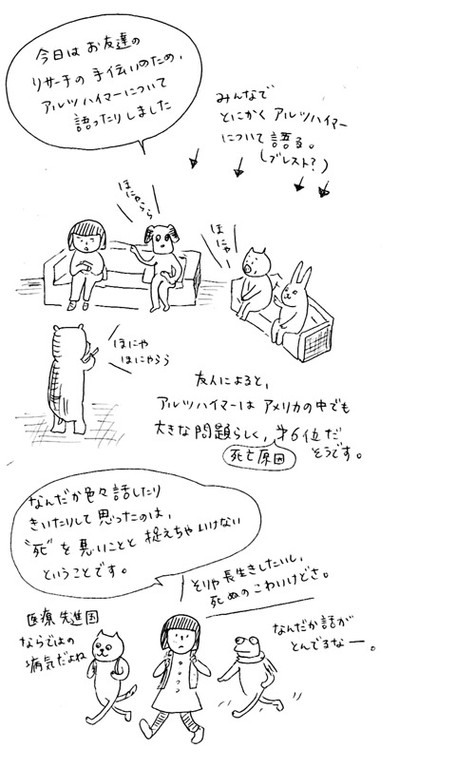 今日は お友達の
リサーチの 手伝いのため、
アルツハイマーについて
語ったりしました
みんなで
とにかく アルツハイマー
について 語る。
(ブレスト?)
ほにゃらら
ほにゃ
ほにゃ
ほにゃらら
友人によると、
アルツハイマーは アメリカの中でも
大きな問題らしく、第6位だ
死亡原因
そうです。
なんだか色々話したり
きいたりして 思ったのは、
"死"を 悪いことと 捉えちゃいけない
ということです。
そりゃ長生きしたいし、
死ぬのこわいけどさ。
医療先進国
ならではの
病気だよね
なんだか話が
とんでるなー。